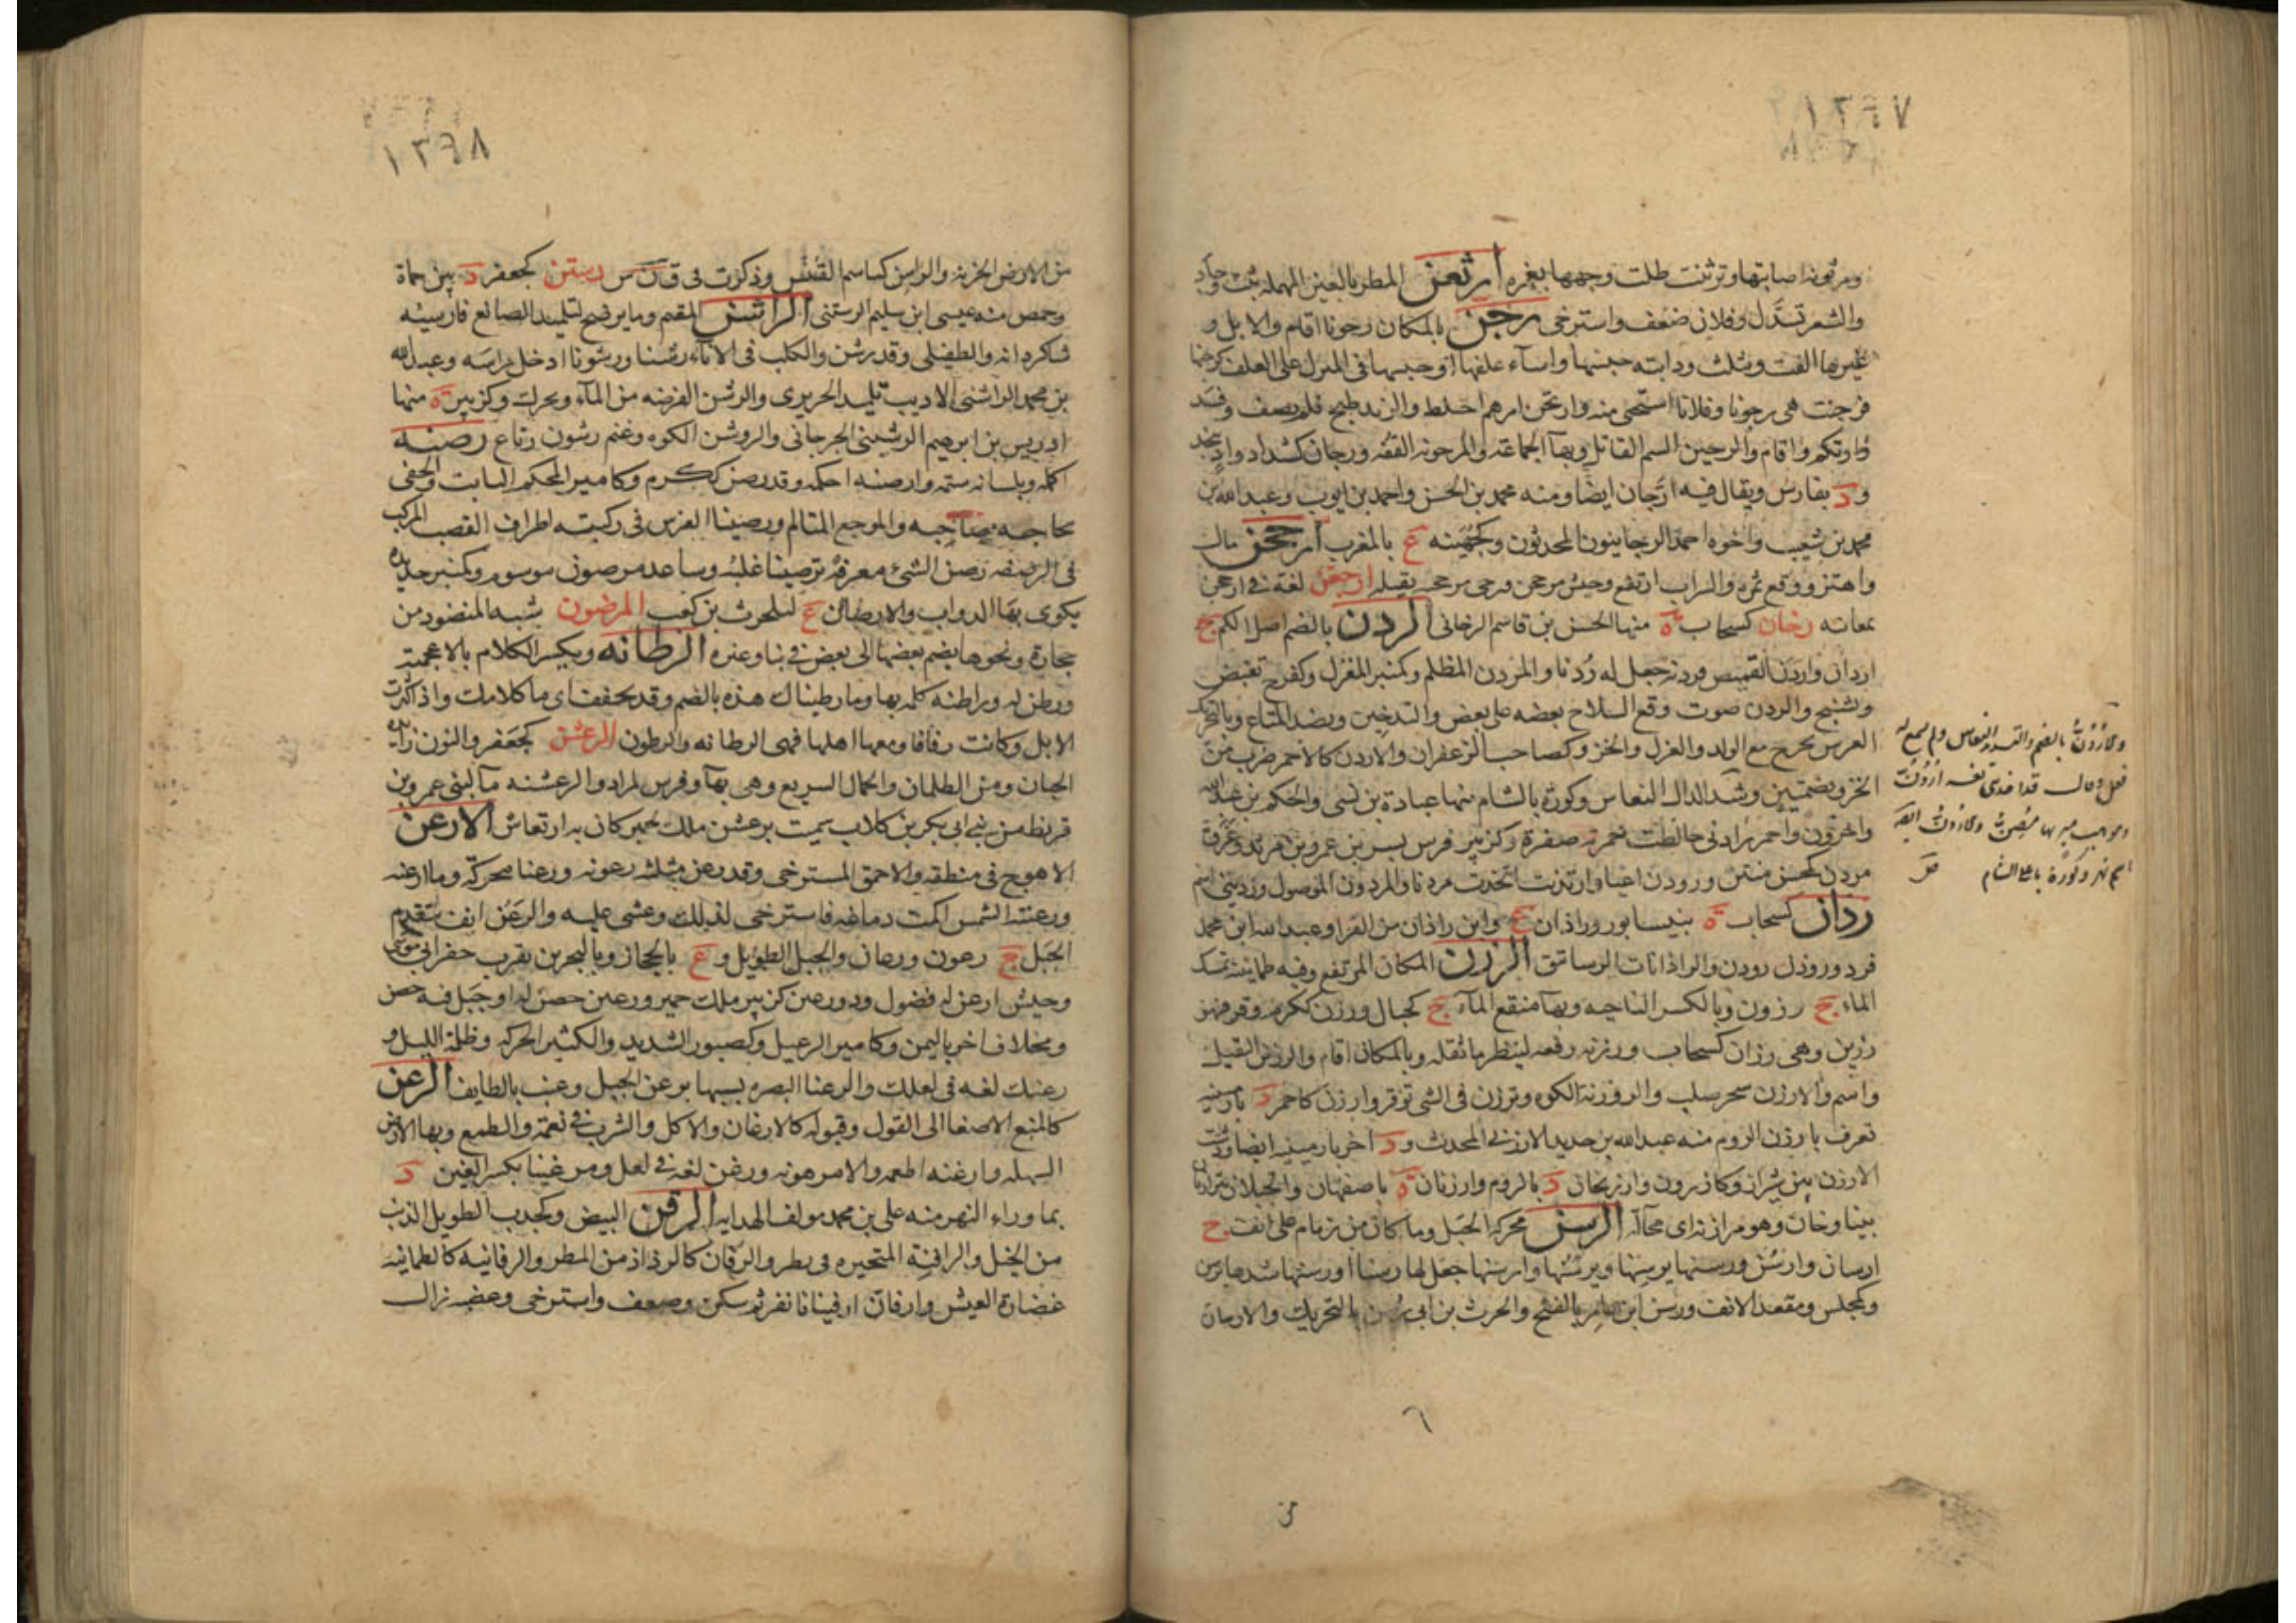 ١٣٩٧
ومرثونه اصابتها وترثنت طلت وجهها بغمره ارثعن المطر بالعين المهمله ثبت وجاد
والشعر تسدل وفلان ضعف واسترخى رجن بالمكان رجونا اقام والابل و
غيرها الفت ويثلث ودابته حبسها واسآء علفها او حبسها في المنزل على العلف
فرجنت هي رجونا وفلانا استحيى منه وارتجن امرهم اختلط والزبد طبخ فلم يصف وفسد
وارتكم واقام والرجين السم القاتل وبهآ الجماعة والمرجونه القفه ورجان كشداد واد بنجد
ود بفارس ويقال فيه ارّجان ايضا ومنه محمد بن الحسن واحمد بن ايوب وعبد الله بن
محمد بن شعيب واخوه احمد الرجانيون المحدثون وكجُهَينه ع بالمغرب ارجحن مال
واهتز ووقع بمره والسراب ارتفع وجيش مرجحن ورحى مرجحنه ثقيله ارجعن لغة في ارجحن
بمعانيه رخان كسحاب ة منها الحسن بن قاسم الرخاني الردن بالضم اصل الكم ج
اردان واردن القميص وردنه جعل له رُدنا والمردن المظلم وكمنبر المغزل وكفرح تقبض
وتشنج والردن صوت وقع السلاح بعضه على بعض والتدخين ونضد المتاع وبالتحريك
الغرس يخرج مع الولد والغزل والخز وكصاحب الزعفران والاردن كالاحمر ضرب من
الخز وبضمتين وشد الدال النعاس وكورة بالشام منها عبادة بن نسى والحكم بن عبد الله
واخرون واحمر رادني خالطت حمرته صفرة وكزبير فرس بسر بن عمرو بن مرثد وعرق
مردن كمحسن منتن ورودن اعيا وارتدنت اتخذت مردنا والمردون الموصول ورديني اسم
رذان كسحاب ة بنيسابور وراذان ع وابن راذان من القرا وعبد الله ابن محمد
فرد وروذن رودن والراذانات الرساتق الرزن المكان المرتفع وفيه طمانينه تمسك
الماء ج رزون وبالكسر الناحيه وبهآ منقع المآء ج كجبال ورزن ككرم وقر فهو
رزين وهي رزان كسحاب ورزنه رفعه لينظر ما ثقله وبالمكان اقام والرزن الثقيل
واسم والارزن شجر صلب والروزنة الكوه وترزن في الشي توقر وارزن كاحمر د بارمنيه
تعرف بارزن الروم منه عبد الله بن حديد الارزني المحدث ود اخر بارمينيه ايضا ودشت
الارزن بين شيراز وكازرون وارزنجان د بالروم وارزنان ة باصفهان والجبلان يترازنان
بينا وخان وهو مرازنه اي محآلّه الرسن محركة الحبل وما كان من زمام على انف ج
ارسان وارسُن ورسنها يرسنها ويرسُنُها وارسنها جعل لها رسنا او رسنها شدها برسن
وكمجلس ومقعد الانف ورسن ابن عامر بالفتح والحرث بن ابي رسن بالتحريك والارسان
والاردُنّ بالضم والتشديد النعاس ولم يسمع له
فعل وقال قد اخذتني نعسة اُردُنّ
وموهب مبز بها مُصِنّ والاردن ايضا
اسم نهر وكُورَة باعلى الشام ص
من
١٣٩٨
من الارض الحزنة والراسن كياسم القَنَس وذكرت في ق ن س رستن كجعفر د بين حماة
وحمص منه عيسى ابن سليم الرستني الراشن المقيم وما يرضخ لتلميد الصانع فارسيته
شاكردانه والطفيلي وقد رشن والكلب في الاناء رشنا ورشونا ادخل راسَه وعبد الله
بن محمد الراشنى الاديب تلميد الحريرى والرشن الفرضه من المآء ويحرك وكزبير ة منها
ادريس بن ابرهيم الرشيني الجرجاني والروشن الكوه وغنم رشون رتاع رصنه
اكمله وبلسانه شتمه وارصنه احكمه وقد رصن ككرم وكامير المحكم الثابت والحفي
بحاجه صاحبه والموجع المتالم ورصينا الفرس في ركبته اطراف القصب المركب
في الرضفه رصن الشئ معرفة ترصينا غلبه وساعد مرصون موسوم وكمنبر حديدة
يكوى بها الدواب والارصان ع لبلحرث بن كعب المرضون شبه المنضود من
حجارة ونحوها يضم بعضها الى بعض في بنا وغيره الرطانه ويكسر الكلام بالاعجميه
ورطن له وراطنه كلمه بها وما رطيناك هذه بالضم وقد يخفف اي ما كلامك واذا كثرت
الابل وكانت رفاقا ومعها اهلها فهي الرطانه والرطون الرعشن كجعفر والنون زايده
الجبان ومن الظلمان والجمال السريع وهي بهآ وفرس لمراد والرعشنه مآ لبني عمرو بن
قريظه من بني ابي بكر بن كلاب سميت برعشن ملك لحمير كان به ارتعاش الارعن
الاهوج في منطقه والاحمق المسترخى وقد رعن مثلثه رعونه ورعنا محركة وما ارعنه
ورعنته الشمس المت دماغه فاسترخى لذلك وغشى عليه والرعن انف يتقدم
الجبل ج رعون ورعان والجبل الطويل وع بالحجاز وبالبحرين بقرب حفر ابي موسى
وجيش ارعن له فضول وذو رعين كزبير ملك حمير ورعين حصن له او جبل فيه حصن
ومخلاف اخر باليمن وكامير الرعيل وكصبور الشديد والكثير الحركه وظلمة الليل و
رعنك لغه في لعلك والرعنا البصره تشبيها برعن الجبل وعنب بالطايف الرغن
كالمنع الاصغا الى القول وقبوله كالارغان والاكل والشرب في نعمة والطمع وبهآ الارض
السهله وارغنه اطعمه والامر هونه ورغن لغة في لعل ومرغينا بكسر الغين د
بما وراء النهر منه علي بن محمد مولف الهدايه الرفن البيض وكخدب الطويل الذنب
من الخيل والرافنة المتبختره في بطر والرفان كالرذاذ من المطر والرفانيه كالطمانينه
غضارة العيش وارفان ارفينانا نفر ثم سكن وضعف واسترخى وغضبه زال